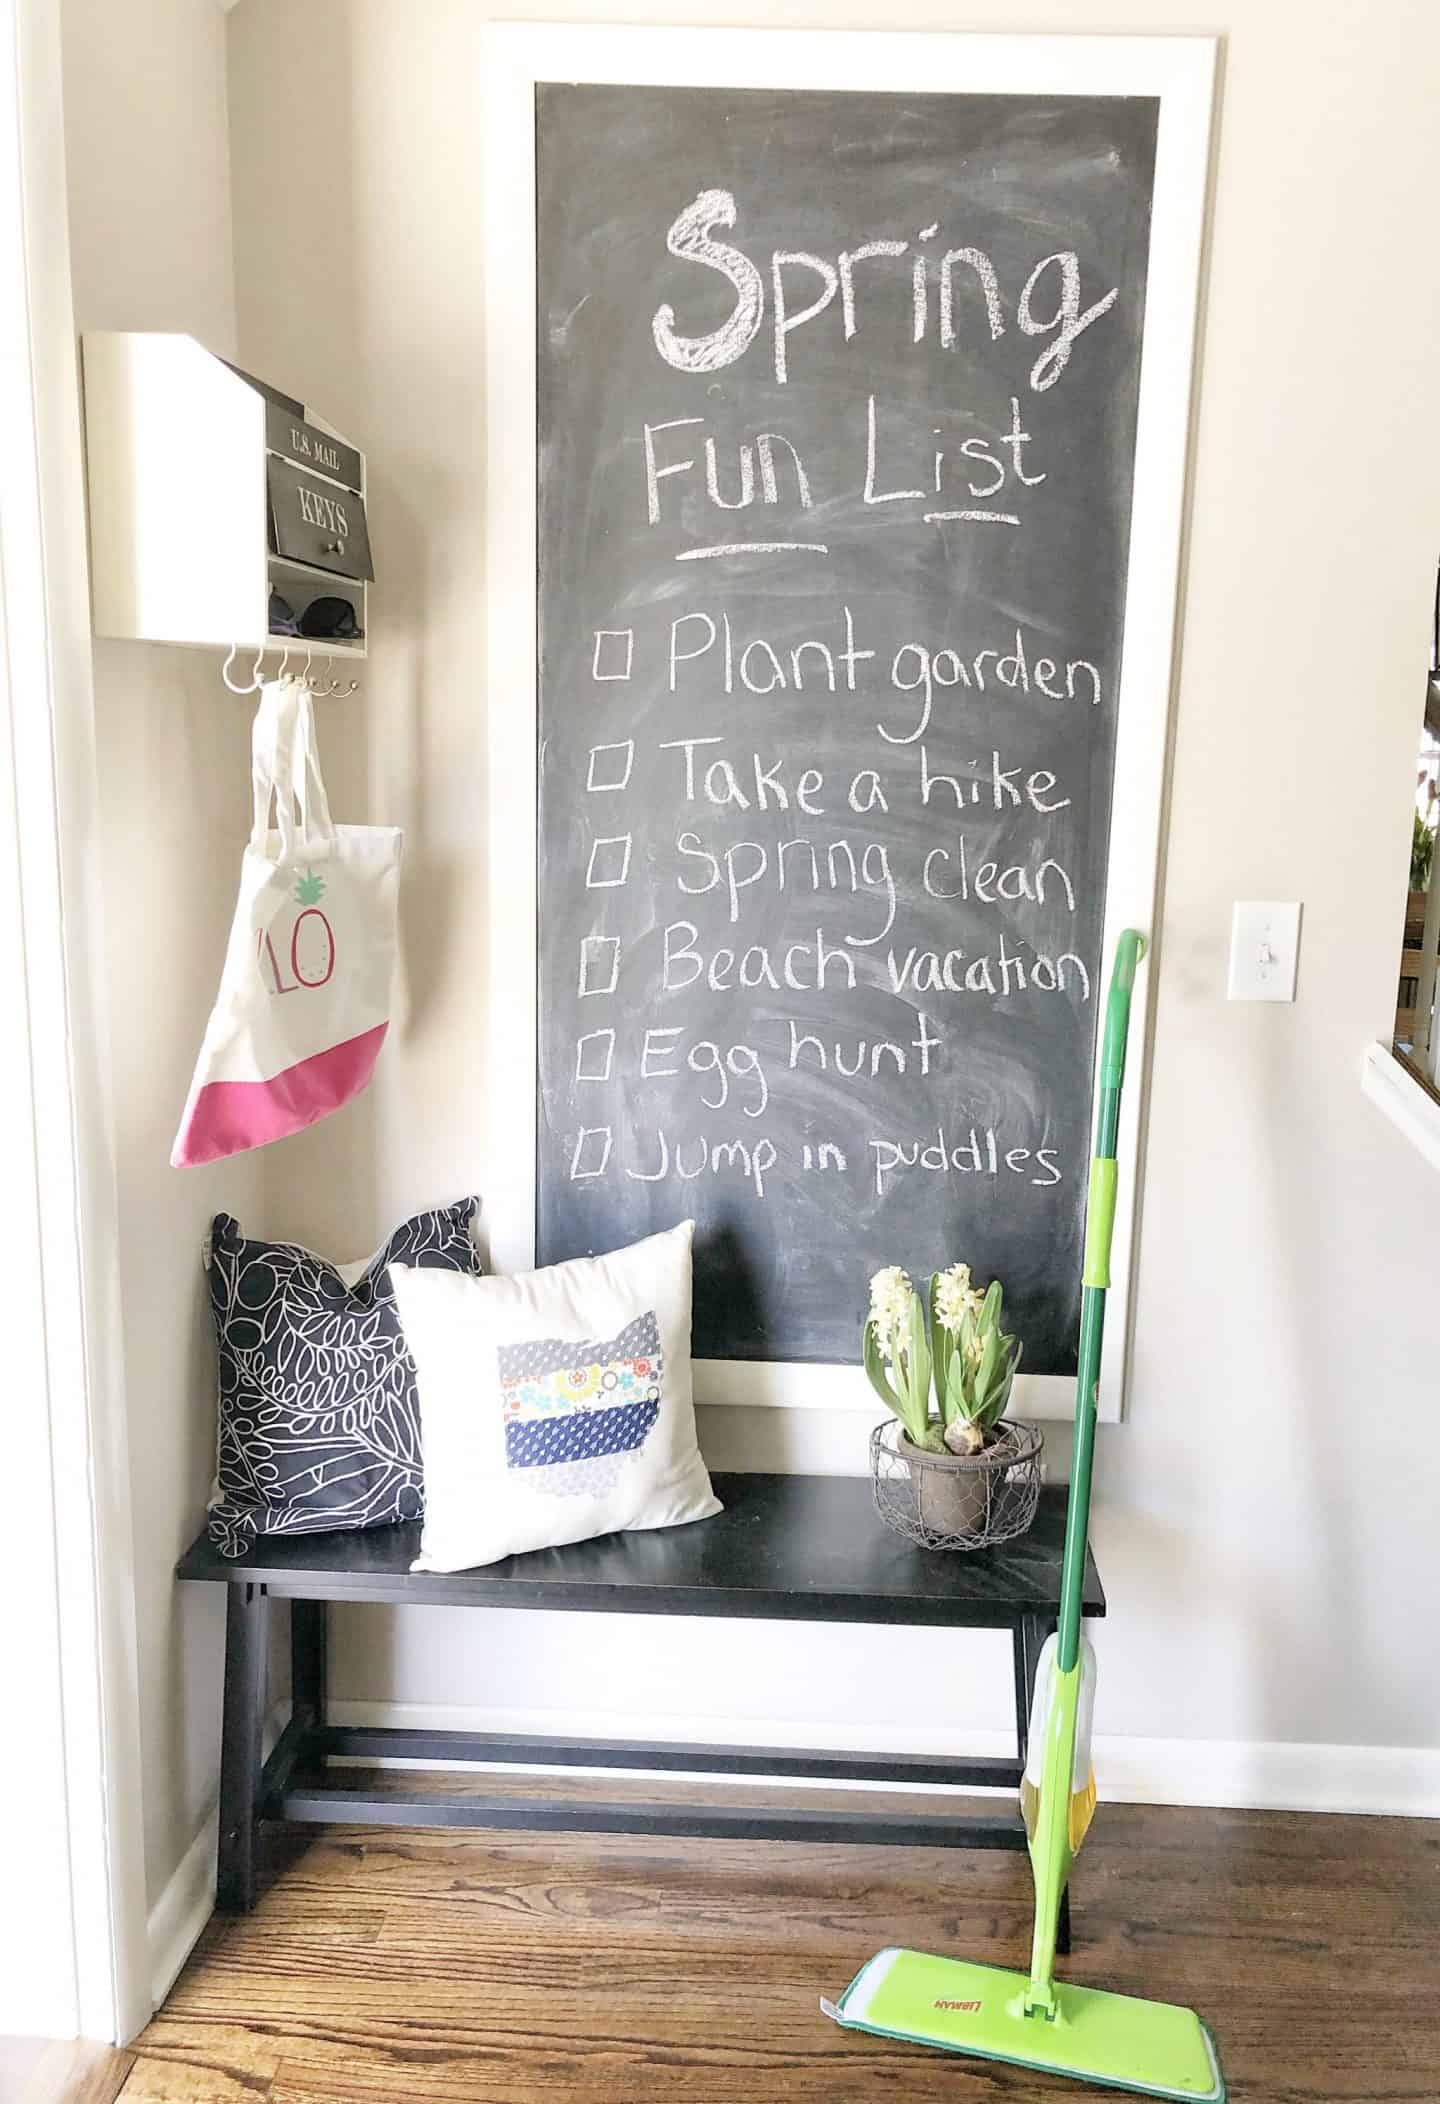 Spring
Fun List
Plant garden
Take a hike
Spring clean
Beach vacation
Egg hunt
Jump in puddles
U.S. MAIL
KEYS
LO
LIBMAN